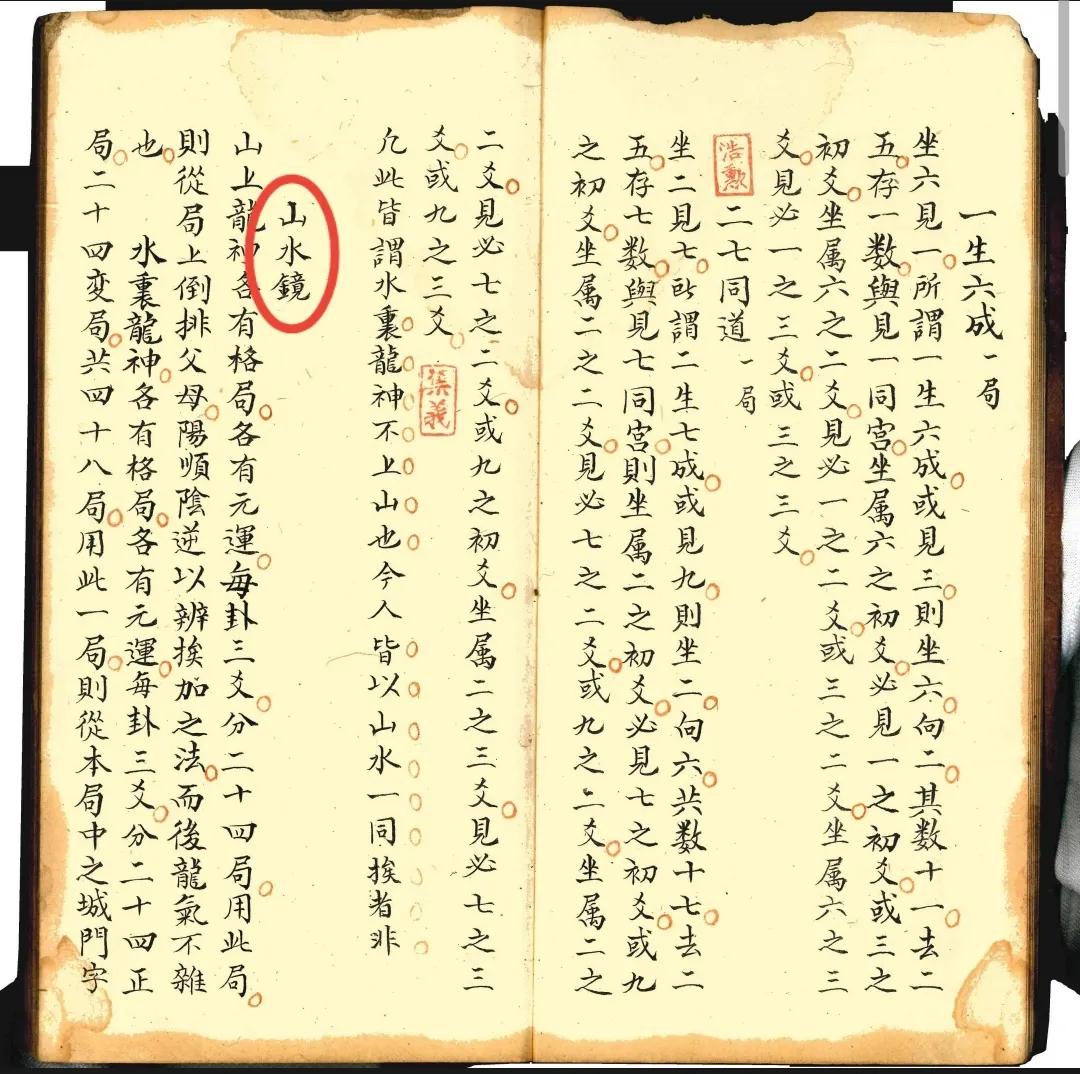 一生六成一局
坐六見一所謂一生六成或見三則坐六向二其数十一去二
五存一数與見一同宫坐属六之初爻必見一之初爻或三之
初爻坐属六之二爻見必一之二爻或三之二爻坐属六之三
爻見必一之三爻或三之三爻
浩勲
二七同道一局
坐二見七所謂二生七成或見九則坐二向六共数十七去二
五存七数與見七同宫則坐属二之初爻必見七之初爻或九
之初爻坐属二之二爻見必七之二爻或九之二爻坐属二之
二爻見必七之二爻或九之初爻坐属二之三爻見必七之三
爻或九之三爻
集義
凢此皆謂水裏龍神不上山也今人皆以山水一同挨者非
山水鏡
山上龍神各有格局各有元運每卦三爻分二十四局用此局
則從局上倒排父母陽順陰逆以辨挨加之法而後龍氣不雜
也　水裏龍神各有格局各有元運每卦三爻分二十四正
局二十四変局共四十八局用此一局則從本局中之城門字